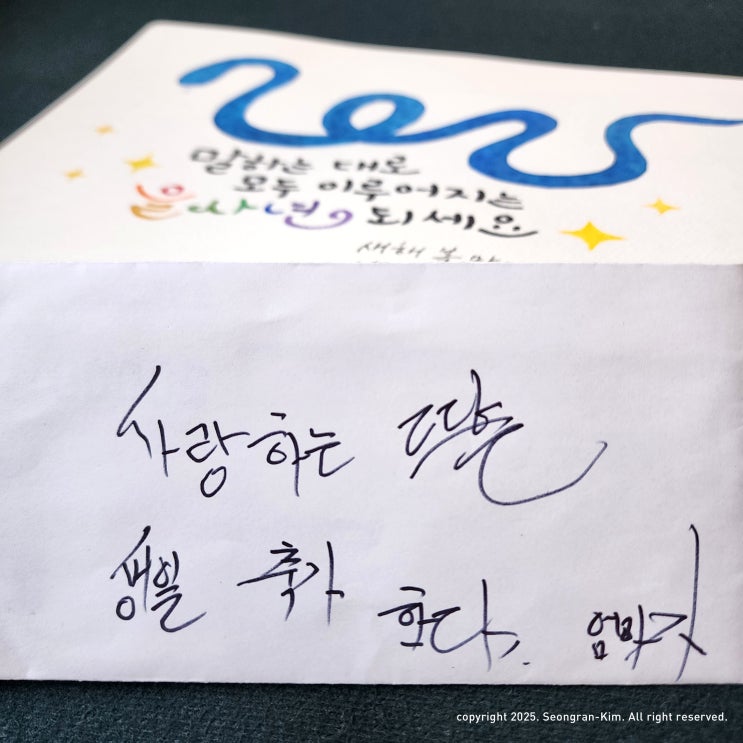 말하는 대로
모두 이루어지는
을사년 되세요
새해 복
사랑하는 딸
생일 축하
한다.
copyright 2025. Seongran-Kim. All right reserved.